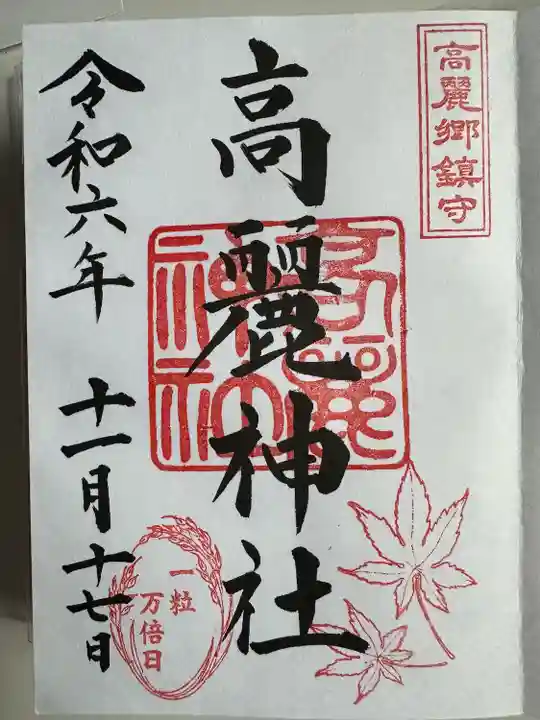 高麗郷鎮守
高麗神社
高麗神社
令和六年 十一月十七日
一粒
万倍日